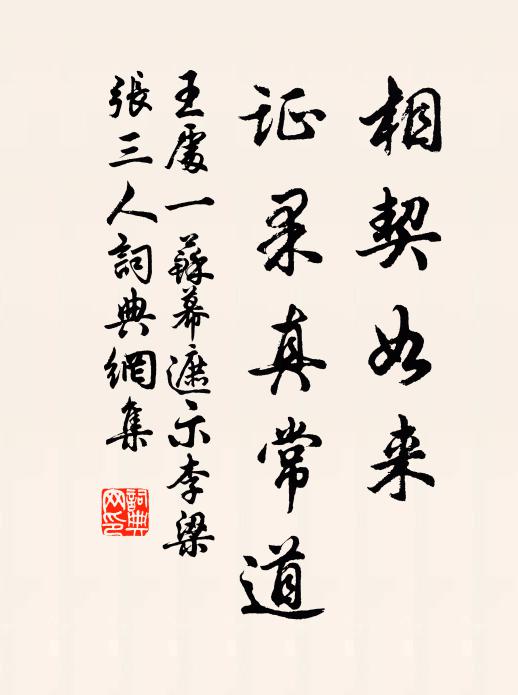 相契如来
证果真常道
王處一蘇幕遮示李梁
張三人詞典網集
詞典网印